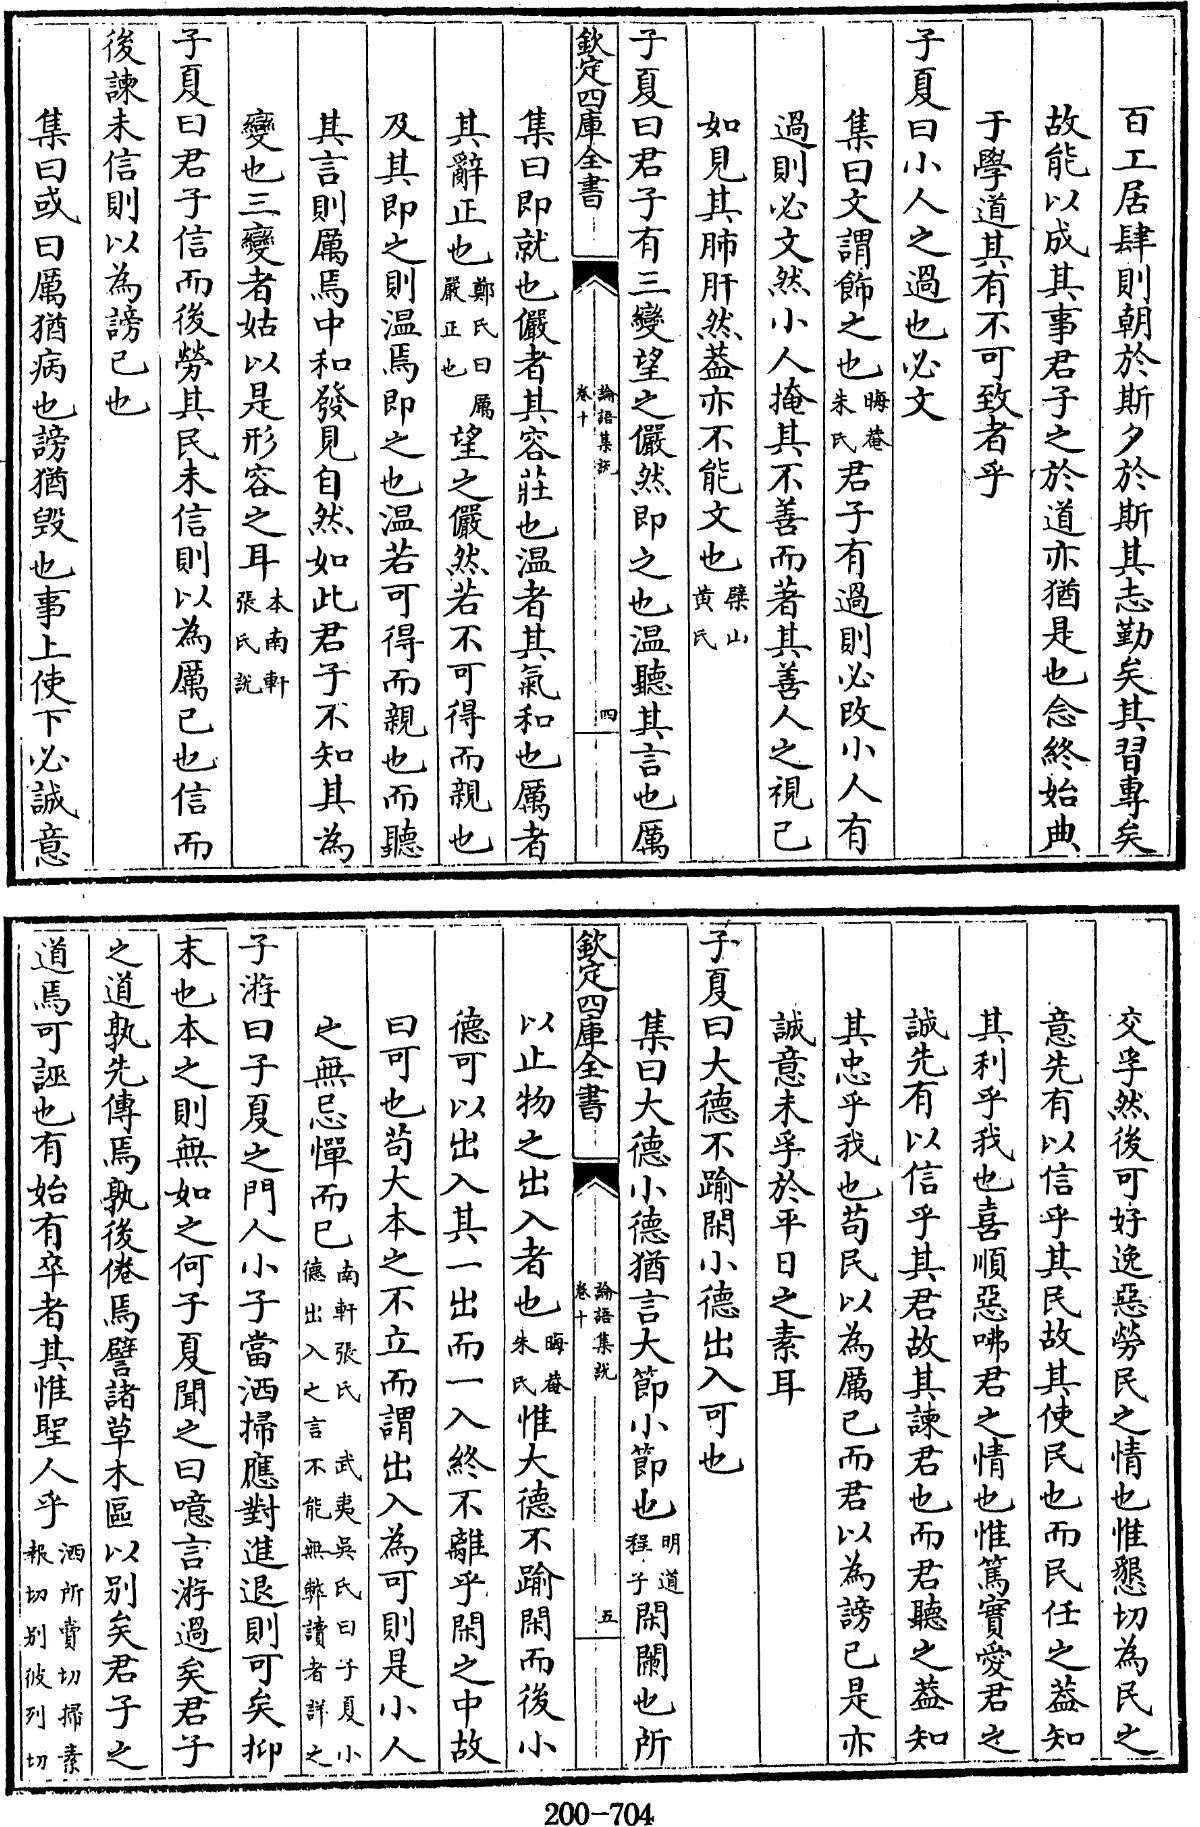 百工居肆則朝於斯夕於斯其志勤矣其習專矣
故能以成其事君子之於道亦猶是也念終始典
于學道其有不可致者乎
子夏曰小人之過也必文
集曰文謂飾之也晦菴朱氏君子有過則必改小人有
過則必文然小人掩其不善而著其善人之視己
如見其肺肝然葢亦不能文也檗山黄氏
子夏曰君子有三變望之儼然即之也温聽其言也厲
欽定四庫全書
論語集説
卷十
四
集曰即就也儼者其容莊也温者其氣和也厲者
其辭正也鄭氏曰厲嚴正也望之儼然若不可得而親也
及其即之則温焉即之也温若可得而親也而聽
其言則厲焉中和發見自然如此君子不知其為
變也三變者姑以是形容之耳本南軒張氏説
子夏曰君子信而後勞其民未信則以為厲己也信而
後諫未信則以為謗己也
集曰或曰厲猶病也謗猶毁也事上使下必誠意
交孚然後可好逸惡勞民之情也惟懇切為民之
意先有以信乎其民故其使民也而民任之葢知
其利乎我也喜順惡咈君之情也惟篤實愛君之
誠先有以信乎其君故其諫君也而君聽之葢知
其忠乎我也苟民以為厲己而君以為謗己是亦
誠意未孚於平日之素耳
子夏曰大德不踰閑小德出入可也
集曰大德小德猶言大節小節也明道程子閑闌也所
欽定四庫全書
論語集説
卷十
五
以止物之出入者也晦菴朱氏惟大德不踰閑而後小
德可以出入其一出而一入終不離乎閑之中故
曰可也苟大本之不立而謂出入為可則是小人
之無忌憚而已南軒張氏 武夷吳氏曰子夏小德出入之言不能無弊讀者詳之
子游曰子夏之門人小子當洒掃應對進退則可矣抑
末也本之則無如之何子夏聞之曰噫言游過矣君子
之道孰先傳焉孰後倦焉譬諸草木區以别矣君子之
道焉可誣也有始有卒者其惟聖人乎洒所賣切掃素報切别彼列切
200-704